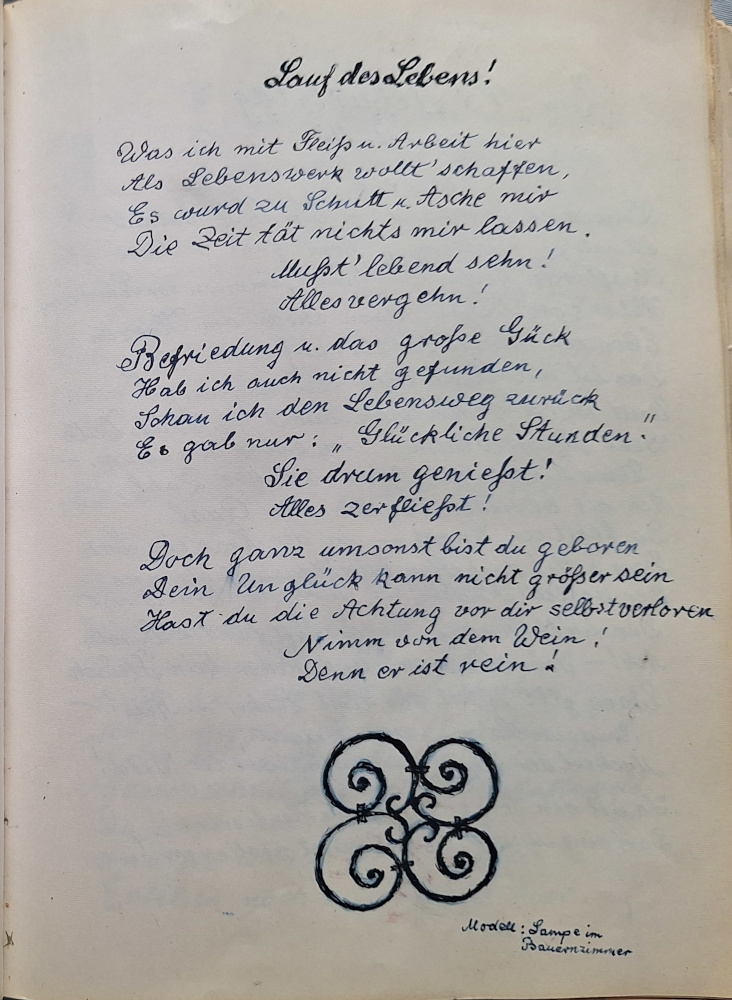 Lauf des Lebens!
Was ich mit Fleiß u. Arbeit hier
Als Lebenswerk wollt' schaffen,
Es wurd zu Schutt u. Asche mir
Die Zeit tät nichts mir lassen.
Mußt' lebend sehn!
Alles vergehn!
Befriedung u. das große Gück
Hab ich auch nicht gefunden,
Schau ich den Lebensweg zurück
Es gab nur: „Glückliche Stunden."
Sie drum genießt!
Alles zerfließt!
Doch ganz umsonst bist du geboren
Dein Unglück kann nicht größer sein
Hast du die Achtung vor dir selbst verloren
Nimm von dem Wein!
Denn er ist rein!
Modell: Lampe im
Bauernzimmer